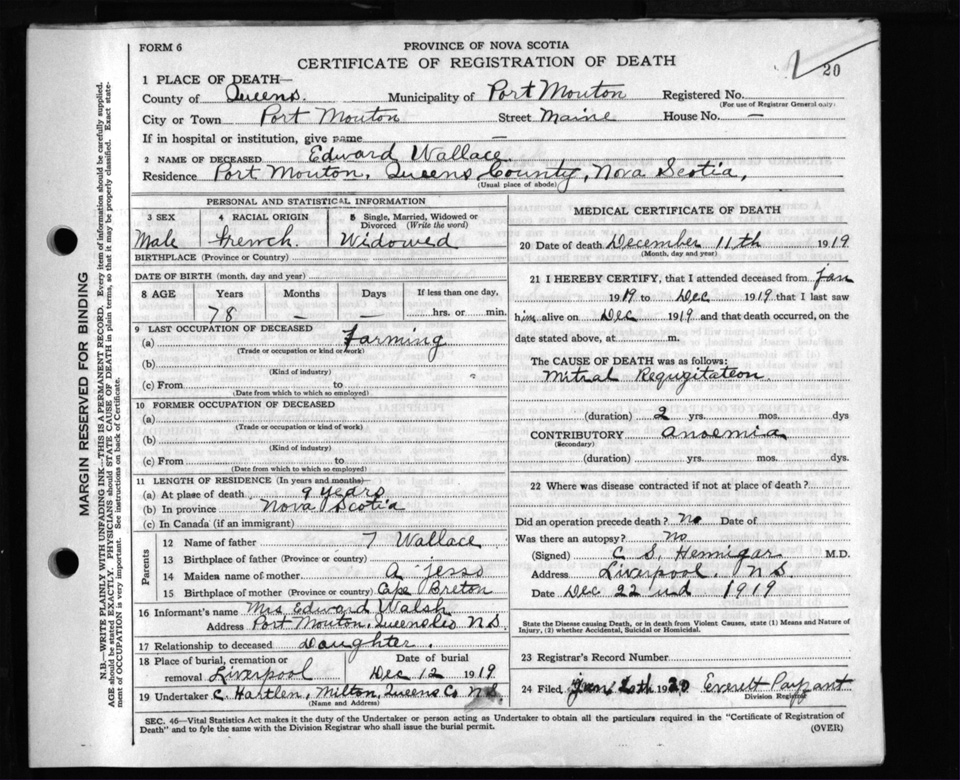 FORM 6
PROVINCE OF NOVA SCOTIA
CERTIFICATE OF REGISTRATION OF DEATH
20
1 PLACE OF DEATH—
County of Queens. Municipality of Port Mouton Registered No.
(For use of Registrar General only)
City or Town Port Mouton Street Maine House No. —
If in hospital or institution, give name —
2 NAME OF DECEASED Edward Wallace
Residence Port Mouton, Queens County, Nova Scotia,
(Usual place of abode)
PERSONAL AND STATISTICAL INFORMATION
3 SEX 4 RACIAL ORIGIN 5 Single, Married, Widowed or Divorced (Write the word)
Male French. Widowed
BIRTHPLACE (Province or Country)
DATE OF BIRTH (month, day and year)
8 AGE Years Months Days If less than one day,
78 — — hrs. or min.
9 LAST OCCUPATION OF DECEASED
(a) Farming
(Trade or occupation or kind of work)
(b)
(Kind of industry)
(c) From to
(Date from which to which so employed)
10 FORMER OCCUPATION OF DECEASED
(a)
(Trade or occupation or kind of work)
(b)
(Kind of industry)
(c) From to
(Date from which to which so employed)
11 LENGTH OF RESIDENCE (In years and months)
(a) At place of death 9 years
(b) In province Nova Scotia
(c) In Canada (if an immigrant)
Parents
12 Name of father 7 Wallace
13 Birthplace of father (Province or country)
14 Maiden name of mother A Jesso
15 Birthplace of mother (Province or country) Cape Breton
16 Informant's name Mrs Edward Walsh
Address Port Mouton, Queens Co N.S.
17 Relationship to deceased Daughter.
18 Place of burial, cremation or removal Liverpool Date of burial Dec 12 1919
19 Undertaker C. Hartlen, Milton, Queens Co. N.S.
(Name and Address)
MEDICAL CERTIFICATE OF DEATH
20 Date of death December 11th 1919
(Month, day and year)
21 I HEREBY CERTIFY, that I attended deceased from Jan
1919 to Dec 1919 that I last saw
him alive on Dec 1919 and that death occurred, on the
date stated above, at m.
The CAUSE OF DEATH was as follows:
Mitral Regugitateon.
(duration) 2 yrs. mos. dys
CONTRIBUTORY Anoemia
(Secondary)
(duration) yrs. mos. dys.
22 Where was disease contracted if not at place of death?
Did an operation precede death? No Date of
Was there an autopsy? No
(Signed) C. S. Hennigar M.D.
Address Liverpool, N.S.
Date Dec 22nd 1919
State the Disease causing Death, or in death from Violent Causes, state (1) Means and Nature of
Injury, (2) whether Accidental, Suicidal or Homicidal.
23 Registrar's Record Number
24 Filed Jan. 20th 1920 Everett Payzant
Division Registrar
SEC. 46—Vital Statistics Act makes it the duty of the Undertaker or person acting as Undertaker to obtain all the particulars required in the "Certificate of Registration of
Death" and to fyle the same with the Division Registrar who shall issue the burial permit.
(OVER)
MARGIN RESERVED FOR BINDING
N.B.—WRITE PLAINLY WITH UNFADING INK—THIS IS A PERMANENT RECORD. Every item of information should be carefully supplied.
AGE should be stated EXACTLY. PHYSICIANS should STATE CAUSE OF DEATH in plain terms, so that it may be properly classified. Exact state-
ment of OCCUPATION is very important. See instructions on back of Certificate.